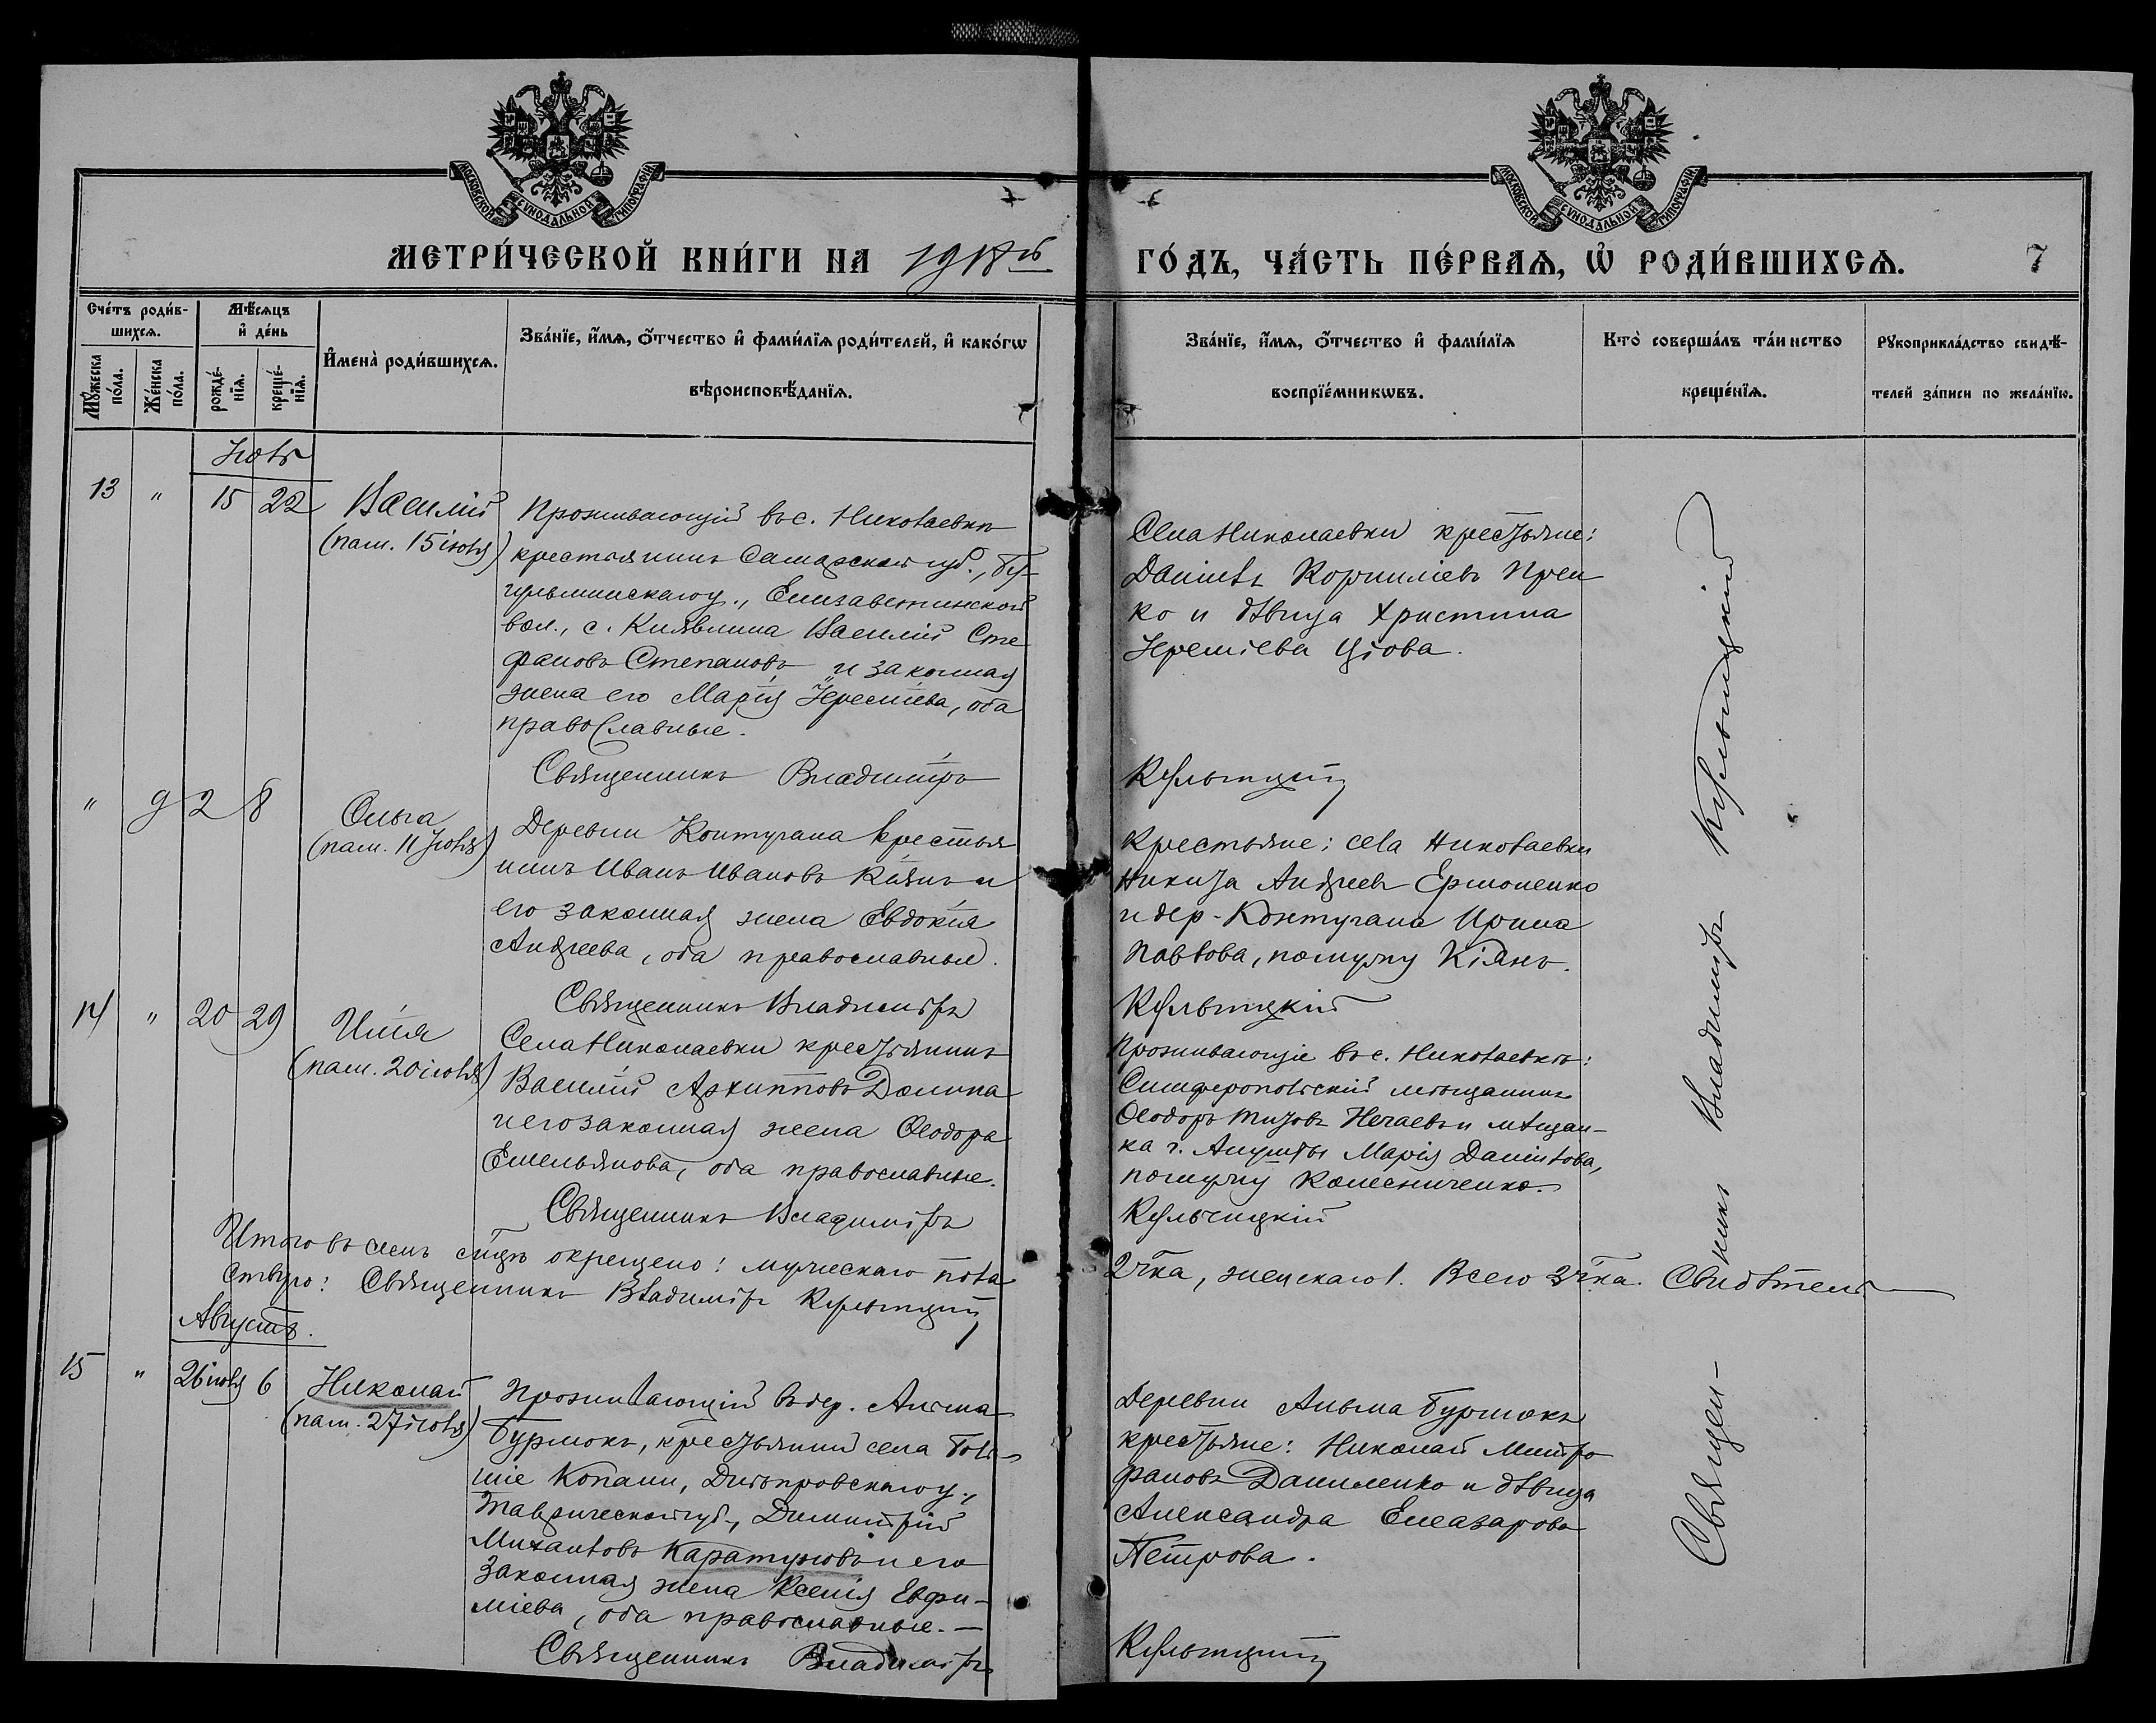 МОСКОВСКОЙ СѴНОДАЛЬНОЙ ТИПОГРАФІИ
МОСКОВСКОЙ СѴНОДАЛЬНОЙ ТИПОГРАФІИ
МЕТРИ́ЧЕСКОЙ КНИ́ГИ НА 1918й
ГО́ДЪ, ЧА́СТЬ ПЕ́РВАѦ, Ѡ҆ РОДИ́ВШИХСѦ. 7
Сче́тъ роди́в-
шихсѧ.
Мꙋ́жеска по́ла.
Же́нска по́ла.
Мѣ́сѧцъ
и҆ де́нь
рожде́-
нїѧ.
креще́-
нїѧ.
И҆мена̀ роди́вшихсѧ.
Зва́нїе, и҆́мѧ, ѻ҆́тчество и҆ фами́лїѧ роди́телей, и҆ како́гѡ
вѣроисповѣ́данїѧ.
Зва́нїе, и҆́мѧ, ѻ҆́тчество и҆ фами́лїѧ
воспрїе́мникѡвъ.
Кто̀ соверша́лъ та́инство
креще́нїѧ.
Рꙋкоприкла́дство свидѣ́-
телей за́писи по жела́нїю.
Іюль
13 " 15 22 Василій
(пам. 15 іюля)
Проживающій въ с. Николаевкѣ
крестьянинъ Самарской губ., Бу-
гульминскаго у., Елизаветинской
вол., с. Клявлина Василій Сте
фановъ Степановъ и законная
жена его Марія Іереміева, оба
православные.
Священникъ Владиміръ
Села Николаевки крестьяне:
Даніилъ Корниліевъ
ко и дѣвица Христина
Іереміева Ціова.
Кульчицкій
" 9 2 8 Ольга
(пам. 11 Іюля)
Деревни Контугана крестья
нинъ Иванъ Ивановъ Кіянъ и
его законная жена Евдокія
Андреева, оба православные.
Священникъ Владиміръ
Крестьяне: села Николаевки
Никита Андреевъ Ермоленко
и дер. Контугана Ирина
Павлова, по мужу Кіянъ.
Кульчицкій
14 " 20 29 Илія
(пам. 20 іюля)
Села Николаевки крестьянинъ
Василій Архипповъ Долина
и его законная жена Ѳеодора
Емельянова, оба православные.
Священникъ Владиміръ
Проживающіе въ с. Николаевкѣ:
Симферопольскій мѣщанинъ
Ѳеодоръ Титовъ Нечаевъ и мѣщан-
ка г. Алушты Марія Даніилова,
по мужу Колесниченко.
Кульчицкій
Итого въ семъ м-цѣ окрещено: мужескаго пола
2-ка, женскаго 1. Всего 3-ка. Свидѣтель
ствую: Священникъ Владиміръ Кульчицкій
Августъ.
15 " 26 іюля 6 Николай
(пам. 27 іюля)
Проживающій въ дер. Альма
Бурлюкъ, крестьянинъ села Боль-
шіе Копани, Днѣпровскаго у.,
Таврической губ., Димитрій
Михаиловъ Каратуновъ и его
законная жена Ксенія Евфи-
міева, оба православные. —
Священникъ Владиміръ
Деревни Альма Бурлюкъ
крестьяне: Николай Митро
фановъ Даниленко и дѣвица
Александра Елеазарова
Петрова.
Кульчицкій
Священ-
никъ Владиміръ Кульчицкій